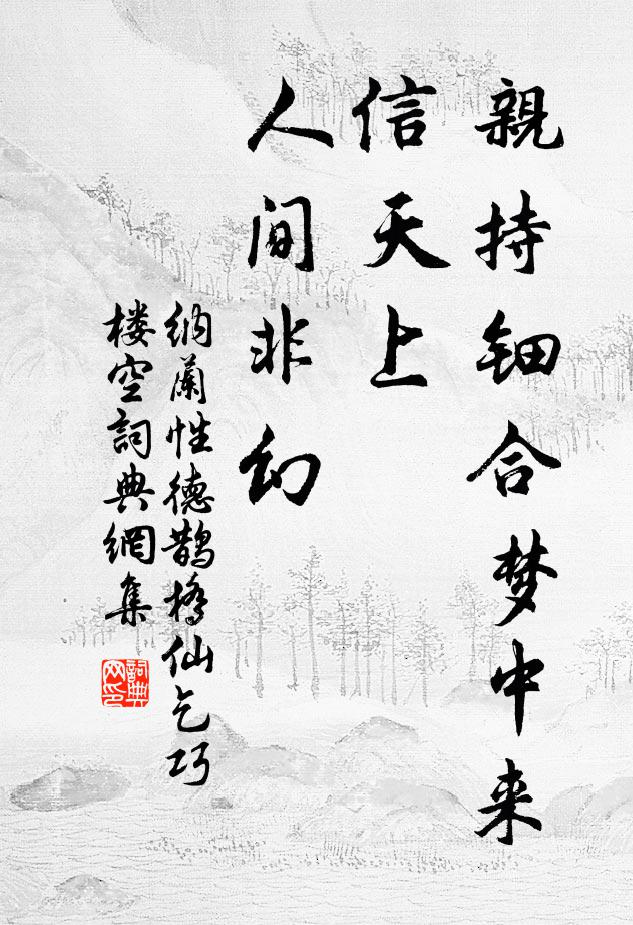 親持钿合梦中来
信天上
人间非幻
纳蘭性德鹊橋仙乞巧
楼空詞典網集
詞典
网印